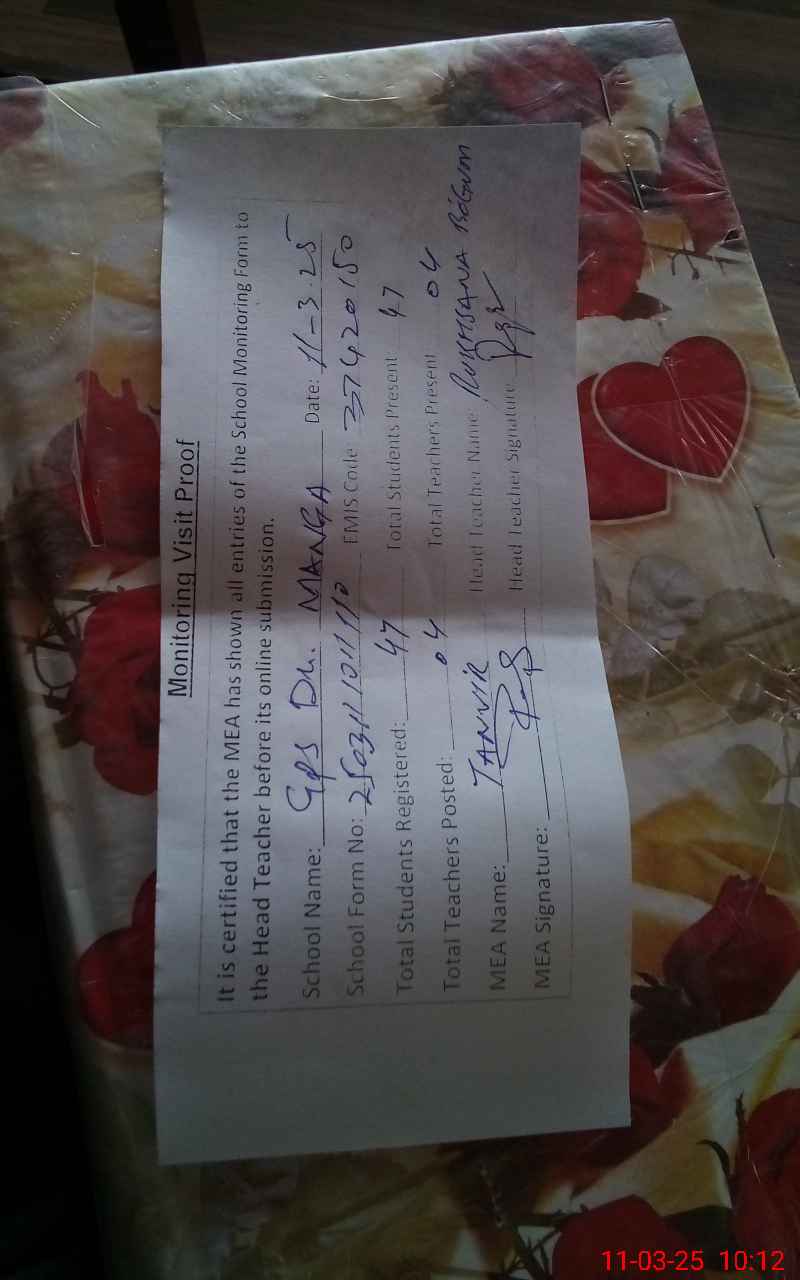 Monitoring Visit Proof
It is certified that the MEA has shown all entries of the School Monitoring Form to
the Head Teacher before its online submission.
School Name: GPS Dh. MANGA Date: 11-3-25
School Form No: EMIS Code 37420150
Total Students Registered: 47 Total Students Present 47
Total Teachers Posted: 04 Total Teachers Present 04
MEA Name: TANVIR Head Teacher Name: RUKHSANA BEGUM
MEA Signature: Head Teacher Signature
11-03-25 10:12